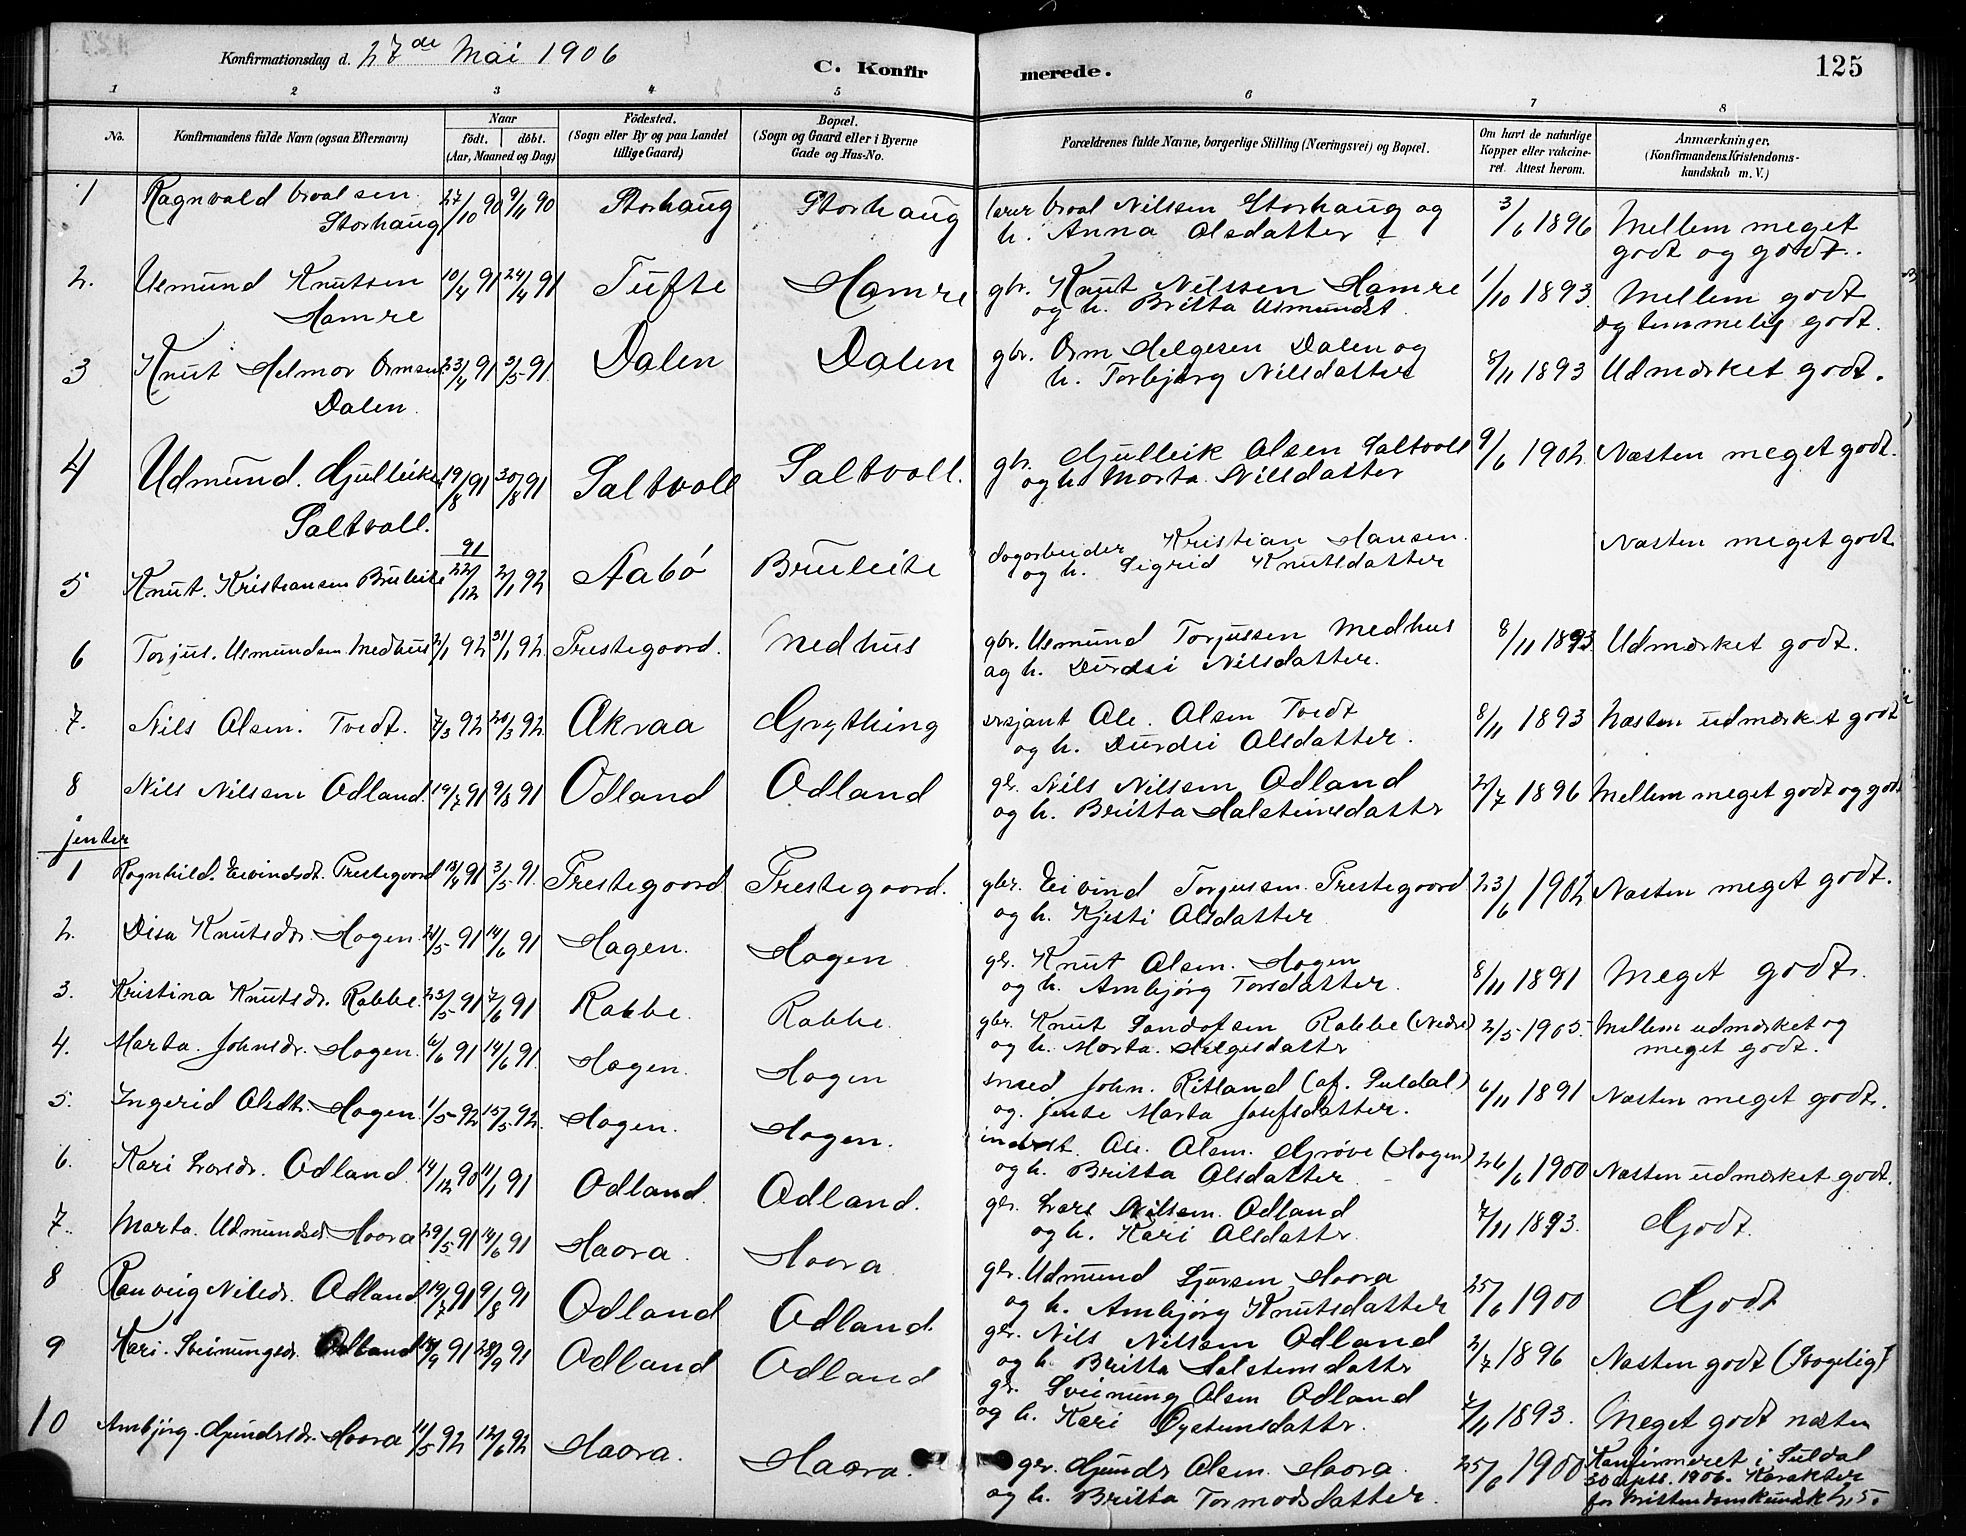 Konfirmationsdag d. 27de Mai 1906
C. Konfirmerede.
125
1 2 3 4 5 6 7 8
No. Konfirmandens fulde Navn (ogsaa Efternavn) Naar født. døbt. (Aar, Maaned og Dag) Fødested. (Sogn eller By og paa Landet tillige Gaard) Bopæl. (Sogn og Gaard eller i Byerne Gade og Hus-No. Forældrenes fulde Navne, borgerlige Stilling (Næringsvei) og Bopæl. Om havt de naturlige Kopper eller vakcineret. Attest herom. Anmærkninger. (Konfirmandens Kristendomskundskab m. V.)
1 Ragnvald Svalsen 27/10 90 9/11 90 Storhaug Storhaug lærer Oval Nilssen Storhaug og 3/6 1896 Mellem meget
Storhaug h. Anna Olsdatter godt og godt.
2. Usmund Knutsen 10/4 91 24/4 91 Tufte Hamre gbr. Knut Nilssen Hamre 1/10 1893. Mellem godt
Hamre og h. Britta Usmundst. og temmelig godt.
3 Knut Helmor Ormsen 23/4 91 3/5 91. Dalen Dalen gbr. Orm Helgesen Dalen og 8/11 1893 Udmærket godt.
Dalen. h. Torbjørg Nilsdatter
4 Udmund. Gjulleiks 19/8 91 30/8 91 Saltvoll Saltvoll. gbr. Gjulleik Olsen Saltvoll 9/6 1902. Næsten meget godt.
Saltvoll. og h. Marta Nilsdatter
5 Knut. Kristiansen Bruleite 91 22/12 2/1 92 Aabó Bruleite dagarbeider Kristian Hansen. Næsten meget godt
og h. Sigrid Knutsdatter
6 Torjus. Usmundsen Medhus 2/1 92 31/1 92. Prestegaard. Medhus gbr. Usmund Torjussen Medhus 8/11 1893 Udmærket godt.
ag h. Durdei Nilsdatter.
7. Nils Olsen. Tvedt. 7/3 92 20/3 92. Akraa Grything sersjant Ole. Olsen Tvedt 8/11 1893 Næsten udmærket godt
og h. Durdei Olsdatter.
8 Nils Nilsen Odland. 19/7 91 9/8 91 Odland Odland gbr. Nils Nilsen Odland 2/7 1896 Mellem meget godt og godt
og h. Britta Halsteinsdattr
jenter
1 Ragnhild. Eivindsdt. Prestegaard 18/4 91 3/5 91. Prestegaard Prestegaard. gbr. Eivind Torjussen. Prestegaard 23/6 1902 Næsten meget godt.
og h. Kjesti Olsdatter
2. Disa Knutsdtr. Hagen. 21/5 91 14/6 91 Hagen. Hagen gbr. Knut Olsen. Hagen 8/11 1891 Meget godt.
og h. Ambjørg Torsdatter.
3. Kristina Knutsdr. Rabbe. 23/5 91 7/6 91 Rabbe. Rabbe. gbr. Knut Sandofsen Rabbe (Nedre) 2/5 1905. Mellem udmærket og
og h. Marta. Helgesdattr meget godt.
4. Marta. Johnsdr. Hagen. 6/6 91 14/6 91. Hagen. Hagen smed John. Ritland (af. Suldal) 6/11 1891 Næsten meget godt.
og. jente Marta Josefsdatter.
5. Ingerid Olsdt. Hagen. 1/5 92 15/5 92. Hagen. Hagen. inderst. Ole. Olsen. Gjrøve (Hagen) 26/6 1900 Næsten udmærket godt.
og h. Britta Olsdatter
6. Kari Larsdr. Odland. 14/12 90 11/1 91 Odland. Odland. gbr. Lars Nilsen. Odland 7/11 1893. Godt.
og h. Kari Olsdatter
7. Marta. Udmundsdr Haara 29/5 91 14/6 91 Haara. Haara. gbr. Udmund Sjursen Haara 25/6 1900 Godt
og h. Ambjörg Knutsdatter
8 Ranveig Nilsdr. Odland 19/7 91 9/8 91 Odland Odland. gbr. Nils Nilsen Odland 2/7 1896 Næsten godt (Svagelig)
og h Britta Halstensdattr
9 Kari. Sveinungsdr. Odland 18/9 91 28/9 91 Odland Odland gbr. Sveinung Olsen Odland 7/11 1893. Meget godt næsten
og h. Kari Oystensdattr.
10 Ambjörg. Gjundsdr. Haara 11/5 92 12/6 92 Haara. Haara. gbr. Gjunds Olsen. Haara. 25/6 1900 Konfirmeret i Suldal
og h. Britta Tormodsdatter. 30 sept. 1906. Karakter
for kristendomskundsk 2,5.